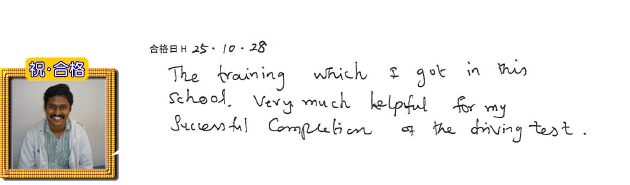 合格日 H 25・10・28
祝・合格
The training which I got in this
school. Very much helpful for my
Successful Completion of the driving test.